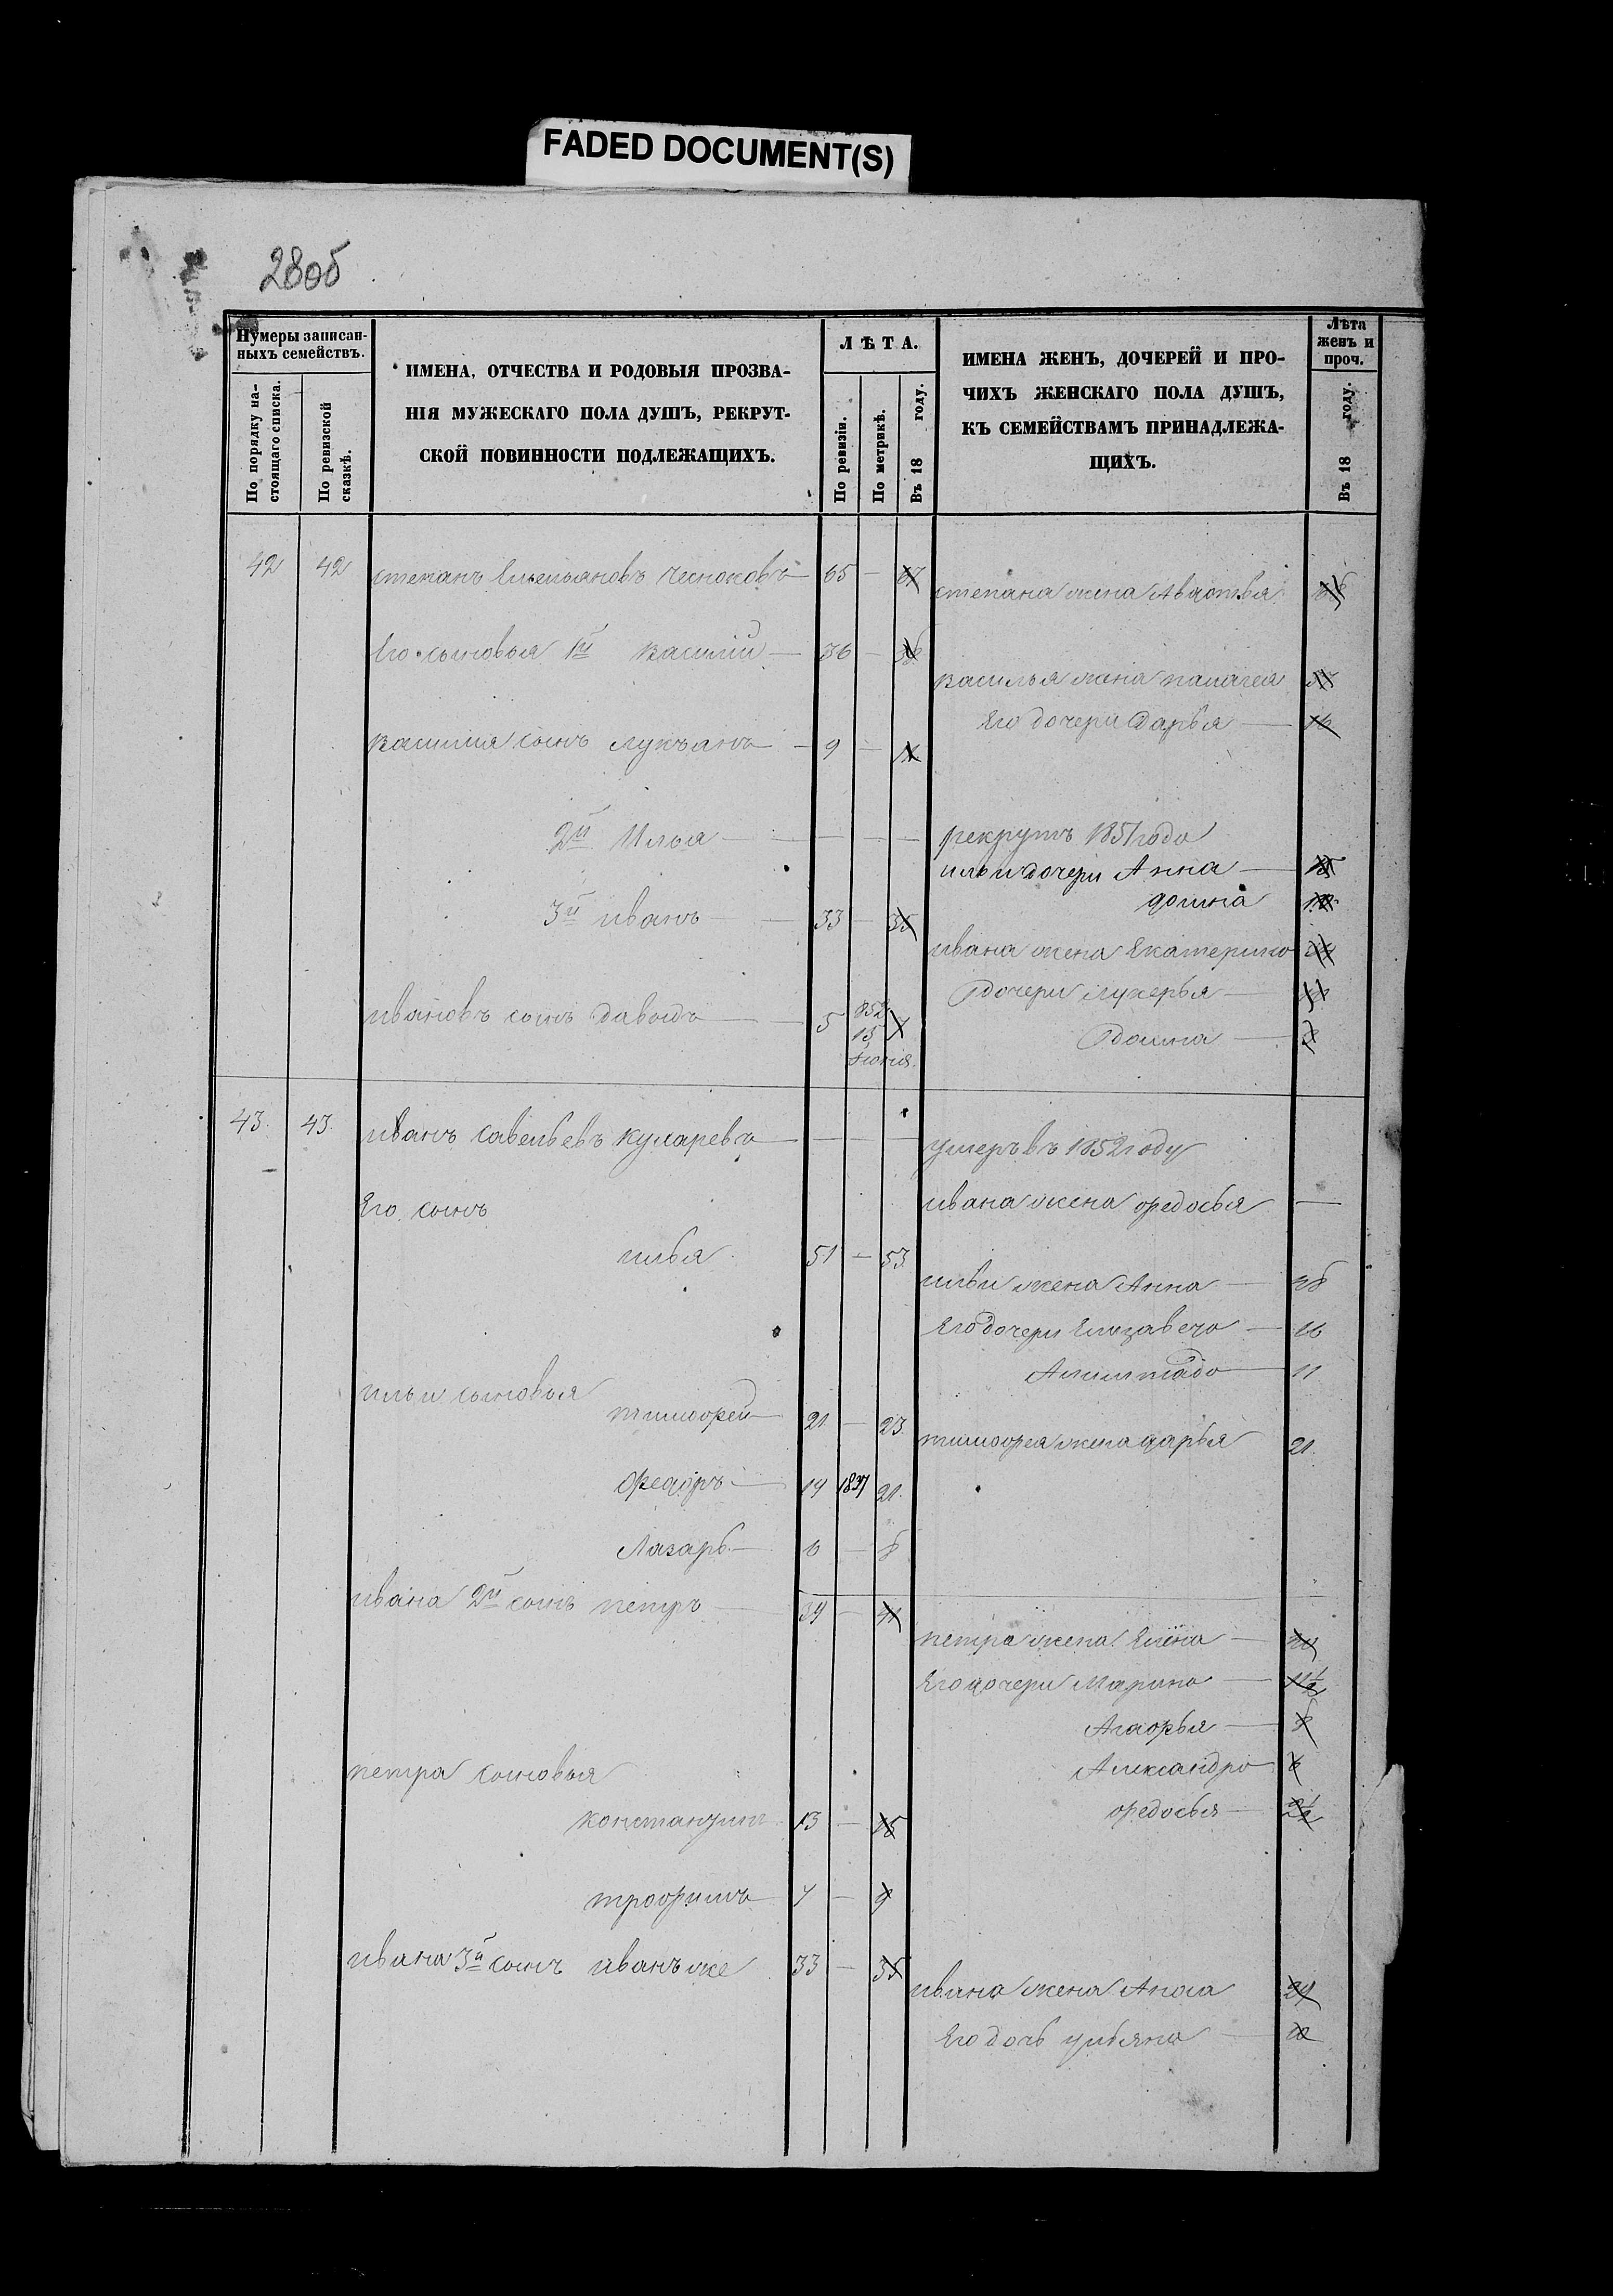 FADED DOCUMENT(S)
28об
Нумеры записан-
ныхъ семействъ.
По порядку на-
стоящаго списка.
По ревизской
сказкѣ.
ИМЕНА, ОТЧЕСТВА И РОДОВЫЯ ПРОЗВА-
НІЯ МУЖЕСКАГО ПОЛА ДУШЪ, РЕКРУТ-
СКОЙ ПОВИННОСТИ ПОДЛЕЖАЩИХЪ.
ЛѢТА.
По ревизіи.
По метрикѣ.
Въ 18 году.
ИМЕНА ЖЕНЪ, ДОЧЕРЕЙ И ПРО-
ЧИХЪ ЖЕНСКАГО ПОЛА ДУШЪ,
КЪ СЕМЕЙСТВАМЪ ПРИНАДЛЕЖА-
ЩИХЪ.
Лѣта
женъ и
проч.
Въ 18 году.
42 42 степанъ Емельяновъ Чесноковъ — 65 — 67
степана жена
Его сыновья 1й Василій — 36 — 38
Василья жена палагея
Его дочери Дарья — 16
Василия сынъ лукьянъ — 9 — 11
2й Илья — — — —
рекрутъ 1851 года
ильи дочери Анна —
домна
3й иванъ — 33 — 35
ивана жена Екатерина
дочери лукерья —
Домна —
ивановъ сынъ давыдъ — 5 852 15 Июня 7
43. 43. иванъ савельевъ — — —
умеръ въ 1852 году
Его сынъ
ивана жена федосья —
илья 51 — 53
ильи жена Анна — 48
Его дочери Елизавета — 16
11
ильи сыновья
тимофей — 21 — 23.
тимофея жена дарья 21.
Федоръ — 19 1837 21.
Лазарь — 6 — 8
ивана 2й сынъ петръ — 39 — 41
петра жена Елена —
Его дочери Марина — 11½
Агафья — 8
Александра 6
федосья — 2½
петра сыновья
константинъ 13 — 15
трофимъ 7 — 9
ивана 3й сынъ иванъ же 33 — 35
ивана жена 29
Его дочь ульяна —